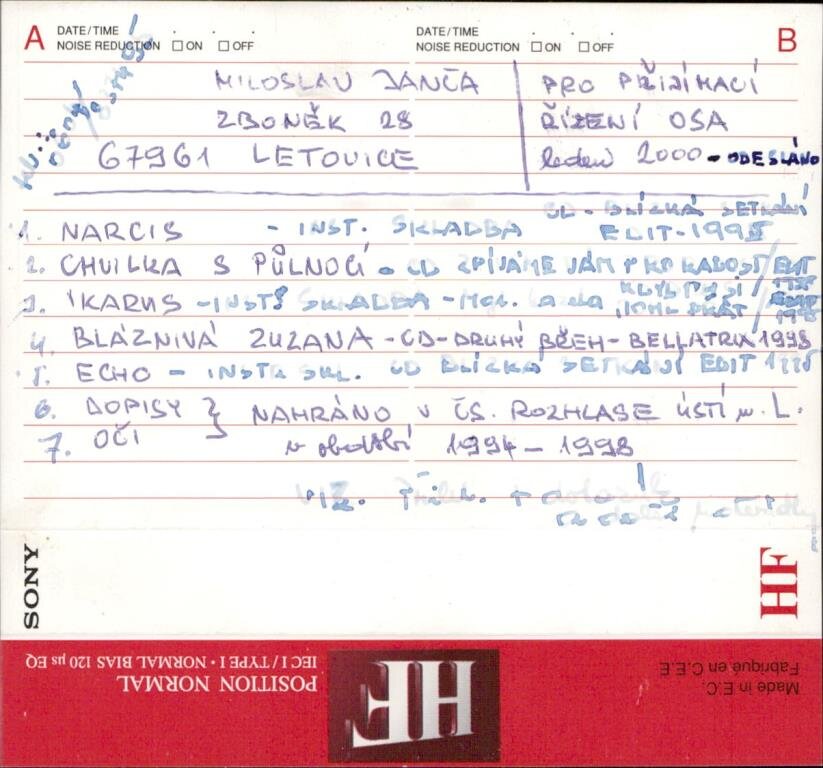 A DATE/TIME
NOISE REDUCTION ☐ ON ☐ OFF
DATE/TIME B
NOISE REDUCTION ☐ ON ☐ OFF
MILOSLAV JANČA
ZBONĚK 28
67961 LETOVICE
PRO PŘIJÍMACÍ
ŘÍZENÍ OSA
leden 2000 - ODESLÁNO
CD - BLÍZKÁ SETKÁNÍ
1. NARCIS - INST. SKLADBA EDIT-1995
2. CHVILKA S PŮLNOCÍ - CD ZPÍVÁME VÁM PRO RADOST/EDIT
1995
3. IKARUS - INST. SKLADBA
1995
4. BLÁZNIVÁ ZUZANA - CD - DRUHÝ BŘEH - BELLATRIX 1998
5. ECHO - INSTR. SKL. CD BLÍZKÁ SETKÁNÍ EDIT 1995
6. DOPISY } NAHRÁNO V ČS. ROZHLASE ÚSTÍ n. L.
7. OČI v období 1994 - 1998
VIZ.
SONY
HF
POSITION NORMAL
IEC I / TYPE I · NORMAL BIAS 120 µs EQ
HF
Made in E.C.
Fabriqué en C.E.E